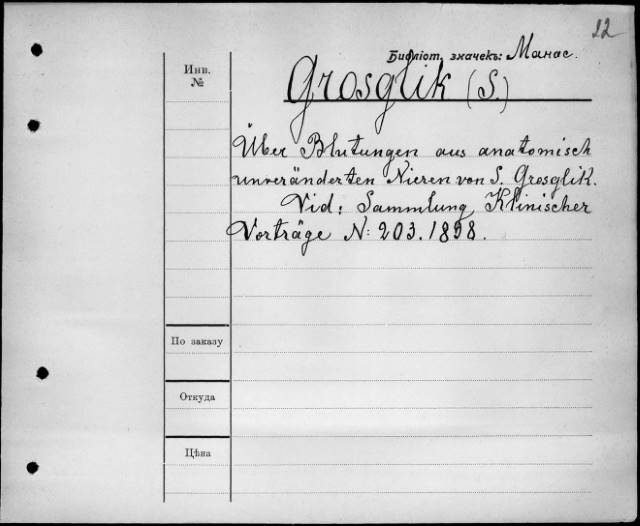 22
Библіот. значекъ: Манас.
Инв.
№
Grosglik (S.)
Über Blutungen aus anatomisch
unveränderten Nieren von S. Grosglik.
Vid: Sammlung Klinischer
Vorträge N: 203. 1898.
По заказу
Откуда
Цѣна